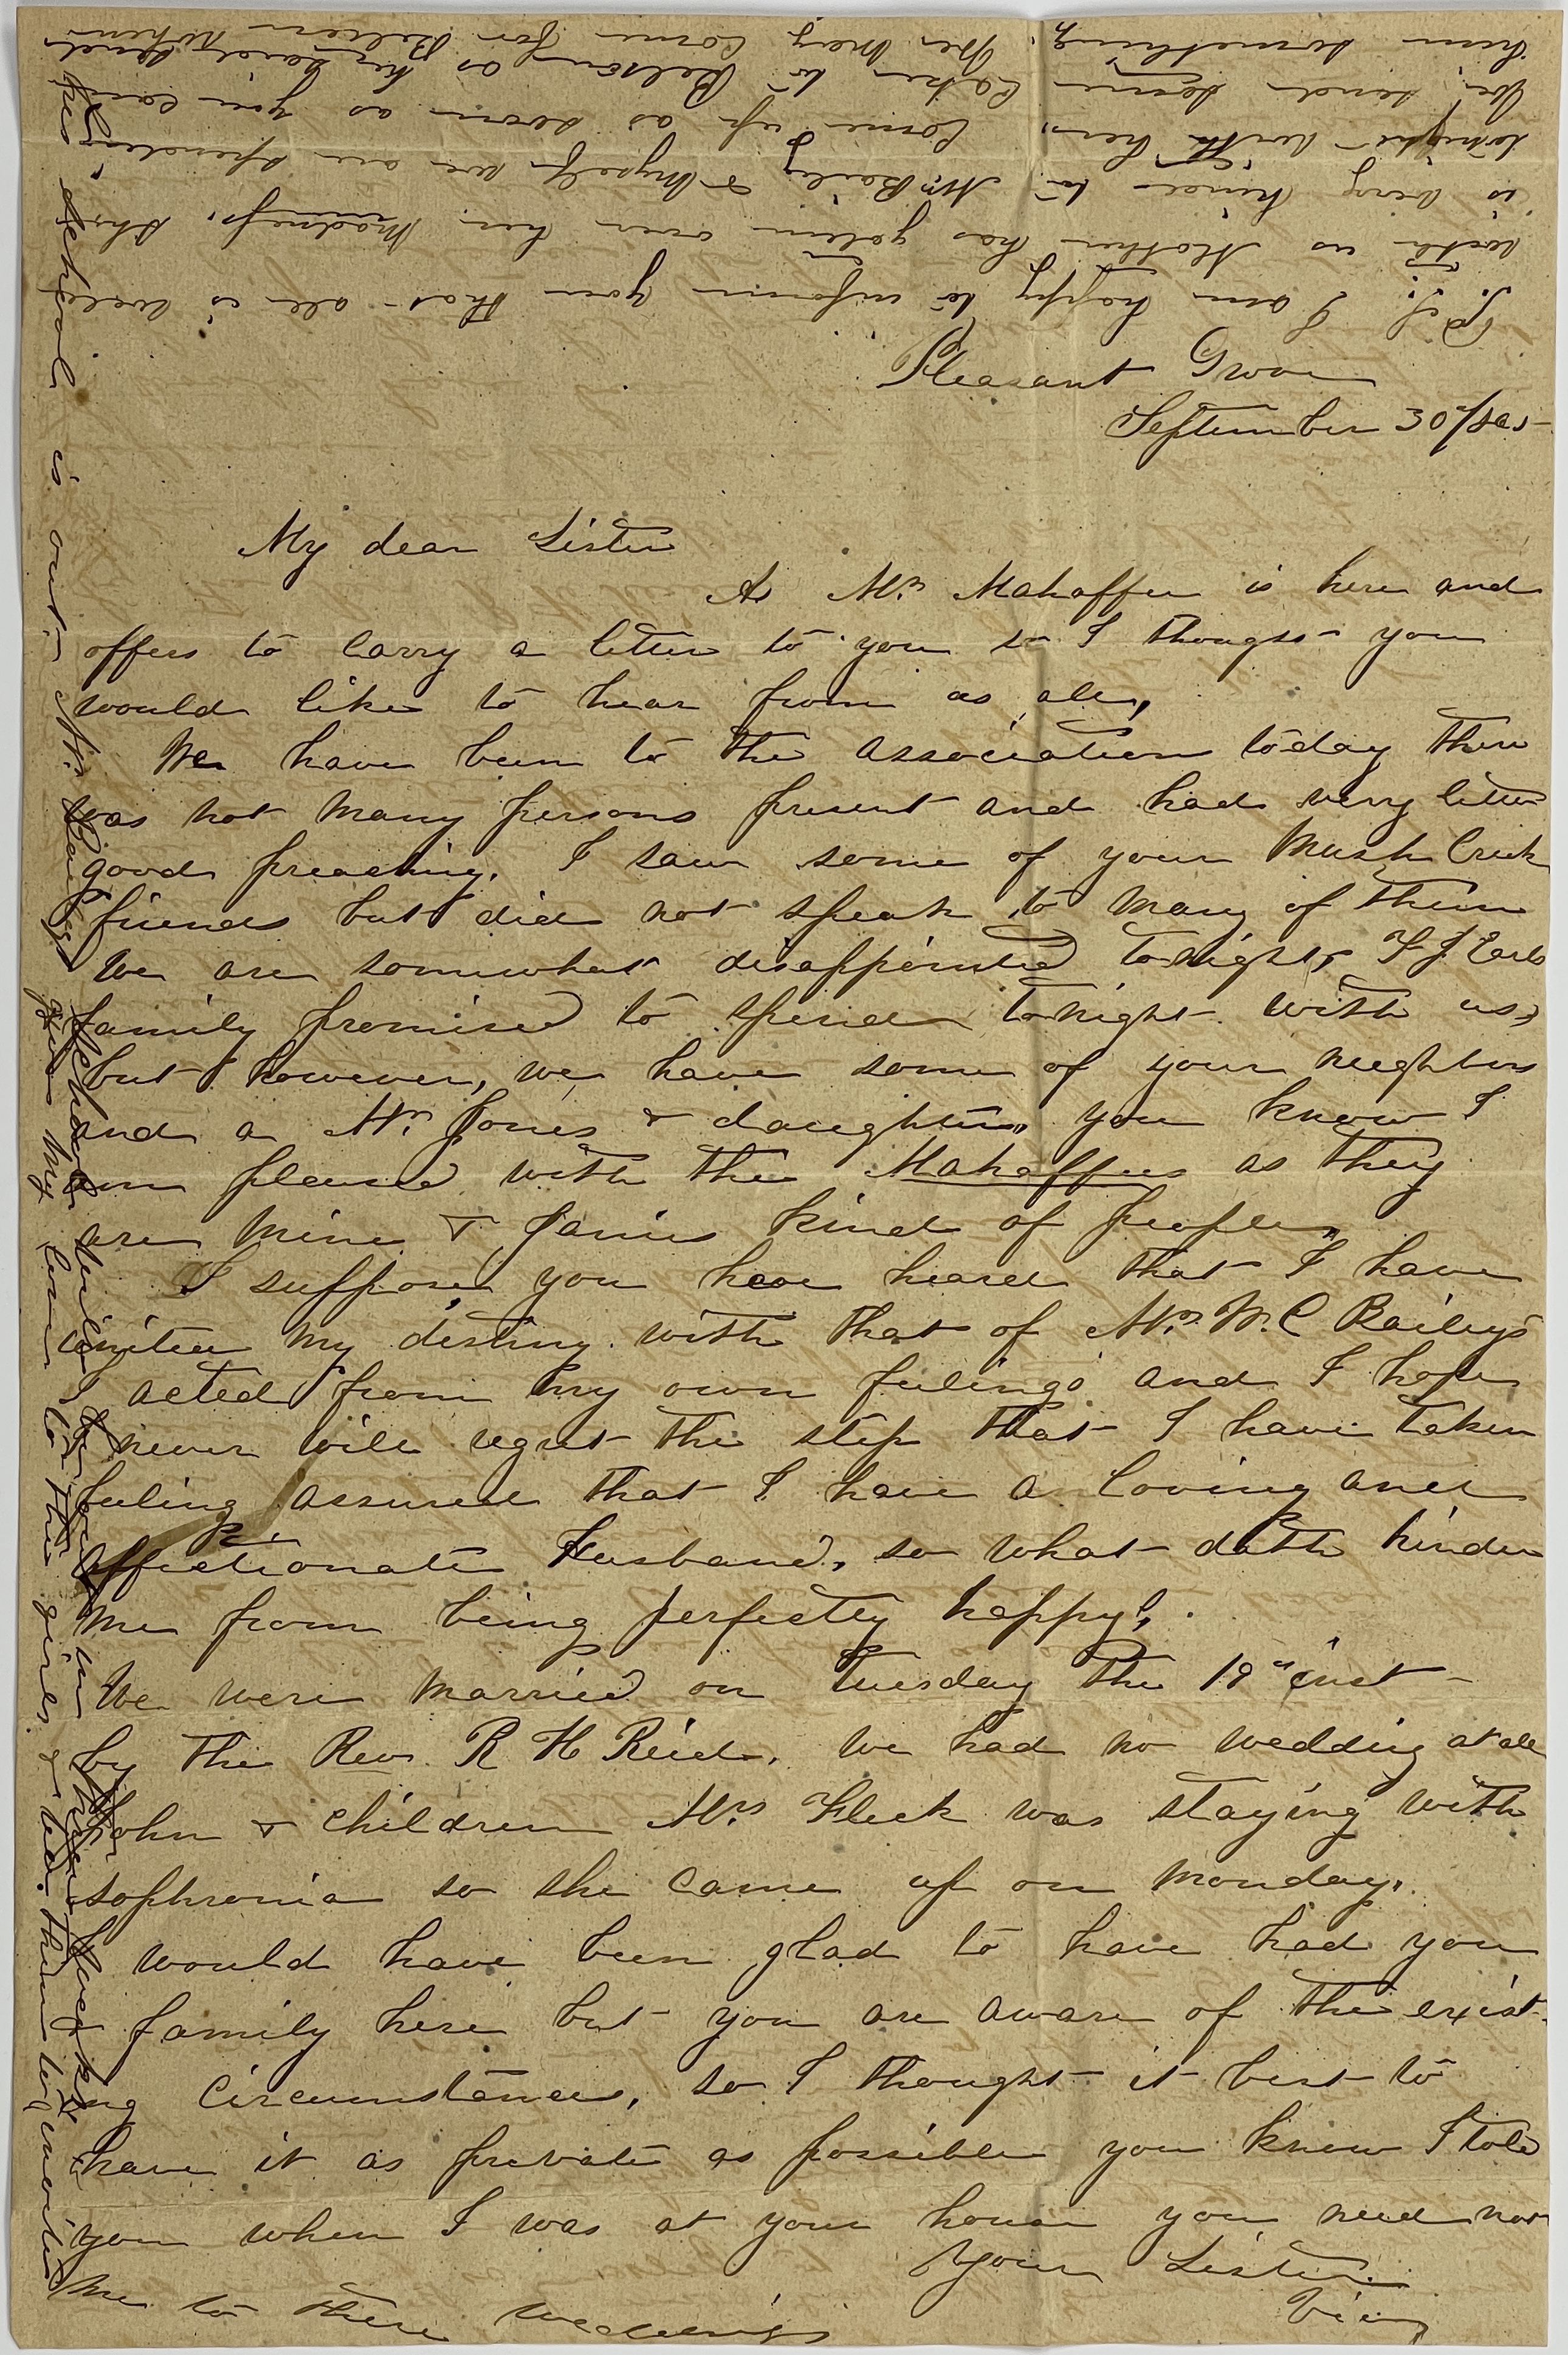 Pleasant Grove
September 30th/
My dear Sister
As Mr. Mahaffee is here and
offers to carry a letter to you so I thought you
would like to hear from us all,
We have been to the association today there
was not many persons present and had very little
good preaching. I saw some of your Mush Creek
friends but did not speak to many of them
We are somewhat disappointed tonight,
family promised to spend tonight with us,
but however, we have some of your neighbors
and a Mr. Jones & daughters, you know I
am pleased with the Mahaffees as they
are mine & Janies kind of people,
I suppose you have heard that I have
united my destiny with that of Mr. W. C Bailey's
I acted from my own feelings and I hope
never will regret the step that I have taken
feeling assured that I have a loving and
affectionate Husband, so what doth hinder
me from being perfectly happy?
We were married on Tuesday the 19th inst-
by the Rev. R H Reid. We had no wedding at all
John & children Mrs Fleck was staying with
sophronia so she came up on Monday,
would have been glad to have had you
family here but you are aware of the exist-
ing circumstances, so I thought it best to
have it as private as possible you know I told
you when I was at your house you need not
me to there weddings
Your Sister
P.S. I am happy to inform you that all is well
with us Mother has goten over her madness, she
is very kind to Mr. Bailey & Myself we are spending
tonight with her, Come up as soon as you can
or send some
him something,
school is out- Mr Bailey's school will
give my love to the girls & tell them to write